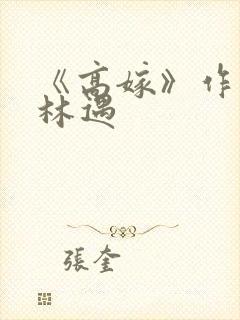 《高嫁》作
林遇
張奎